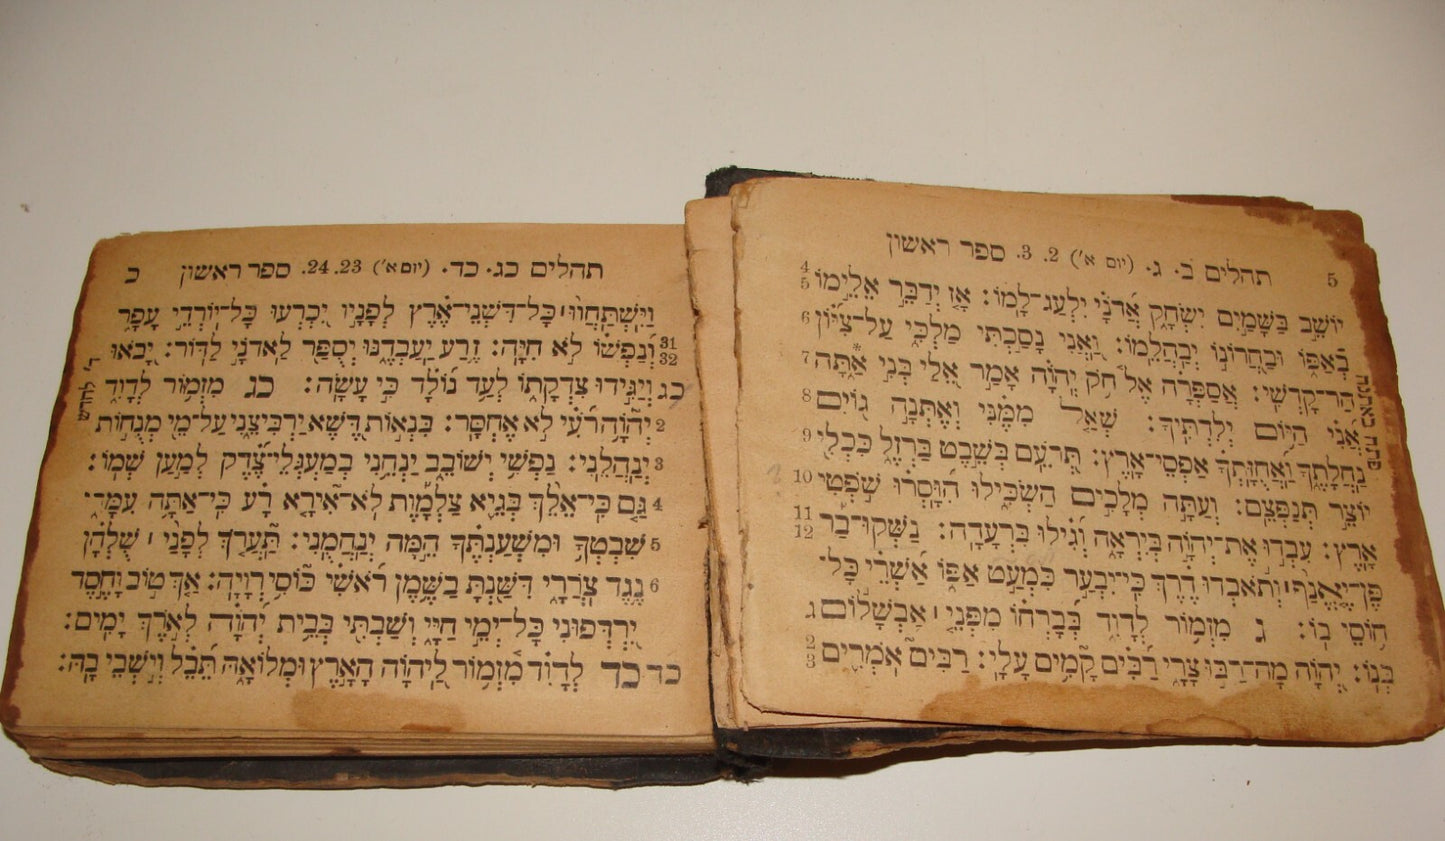 5 תהלים ב. ג. (יום א׳) 2. 3. ספר ראשון
יוֹשֵׁב בַּשָּׁמַיִם יִשְׂחָק אֲדֹנָי יִלְעַג־לָמוֹ: אָז יְדַבֵּר אֵלֵימוֹ 4 5
בְאַפּוֹ וּבַחֲרוֹנוֹ יְבַהֲלֵמוֹ: וַאֲנִי נָסַכְתִּי מַלְכִּי עַל־צִיּוֹן 6
הַר־קָדְשִׁי: אֲסַפְּרָה אֶל חֹק יְהוָֹה אָמַר אֵלַי בְּנִי אַתָּה* 7
אֲנִי הַיּוֹם יְלִדְתִּיךָ: שְׁאַל מִמֶּנִּי וְאֶתְּנָה גוֹיִם 8
נַחֲלָתֶךָ וַאֲחֻזָּתְךָ אַפְסֵי־אָרֶץ: תְּרֹעֵם בְּשֵׁבֶט בַּרְזֶל כִּכְלִי 9
יוֹצֵר תְּנַפְּצֵם: וְעַתָּה מְלָכִים הַשְׂכִּילוּ הִוָּסְרוּ שֹׁפְטֵי 10
אָרֶץ: עִבְדוּ אֶת־יְהוָֹה בְּיִרְאָה וְגִילוּ בִּרְעָדָה: נַשְּׁקוּ־בַר 11 12
פֶּן־יֶאֱנַף ׀ וְתֹאבְדוּ דֶרֶךְ כִּי־יִבְעַר כִּמְעַט אַפּוֹ אַשְׁרֵי כָּל־
חוֹסֵי בוֹ: ג מִזְמוֹר לְדָוִד בְּבָרְחוֹ מִפְּנֵי ׀ אַבְשָׁלוֹם ג
בְּנוֹ: יְהוָֹה מָה־רַבּוּ צָרָי רַבִּים קָמִים עָלָי: רַבִּים אֹמְרִים 2 3
פתח באתנח
תהלים כג. כד. (יום א׳) 24.23. ספר ראשון כ
וַיִּשְׁתַּחֲווּ ׀ כָּל־דִּשְׁנֵי־אֶרֶץ לְפָנָיו יִכְרְעוּ כָּל־יוֹרְדֵי עָפָר
31 32 וְנַפְשׁוֹ לֹא חִיָּה: זֶרַע יַעַבְדֶנּוּ יְסֻפַּר לַאדֹנָי לַדּוֹר: יָבֹאוּ
כג וְיַגִּידוּ צִדְקָתוֹ לְעַם נוֹלָד כִּי עָשָׂה: כג מִזְמוֹר לְדָוִד
2 יְהוָֹה רֹעִי לֹא אֶחְסָר: בִּנְאוֹת דֶּשֶׁא יַרְבִּיצֵנִי עַל־מֵי מְנֻחוֹת
3 יְנַהֲלֵנִי: נַפְשִׁי יְשׁוֹבֵב יַנְחֵנִי בְמַעְגְּלֵי־צֶדֶק לְמַעַן שְׁמוֹ:
4 גַּם כִּי־אֵלֵךְ בְּגֵיא צַלְמָוֶת לֹא־אִירָא רָע כִּי־אַתָּה עִמָּדִי
5 שִׁבְטְךָ וּמִשְׁעַנְתֶּךָ הֵמָּה יְנַחֲמֻנִי: תַּעֲרֹךְ לְפָנַי ׀ שֻׁלְחָן
6 נֶגֶד צֹרְרָי דִּשַּׁנְתָּ בַשֶּׁמֶן רֹאשִׁי כּוֹסִי רְוָיָה: אַךְ טוֹב וָחֶסֶד
יִרְדְּפוּנִי כָּל־יְמֵי חַיָּי וְשַׁבְתִּי בְּבֵית יְהוָֹה לְאֹרֶךְ יָמִים:
כד כד לְדָוִד מִזְמוֹר לַיהוָֹה הָאָרֶץ וּמְלוֹאָהּ תֵּבֵל וְיֹשְׁבֵי בָהּ:
ד׳ לחדש